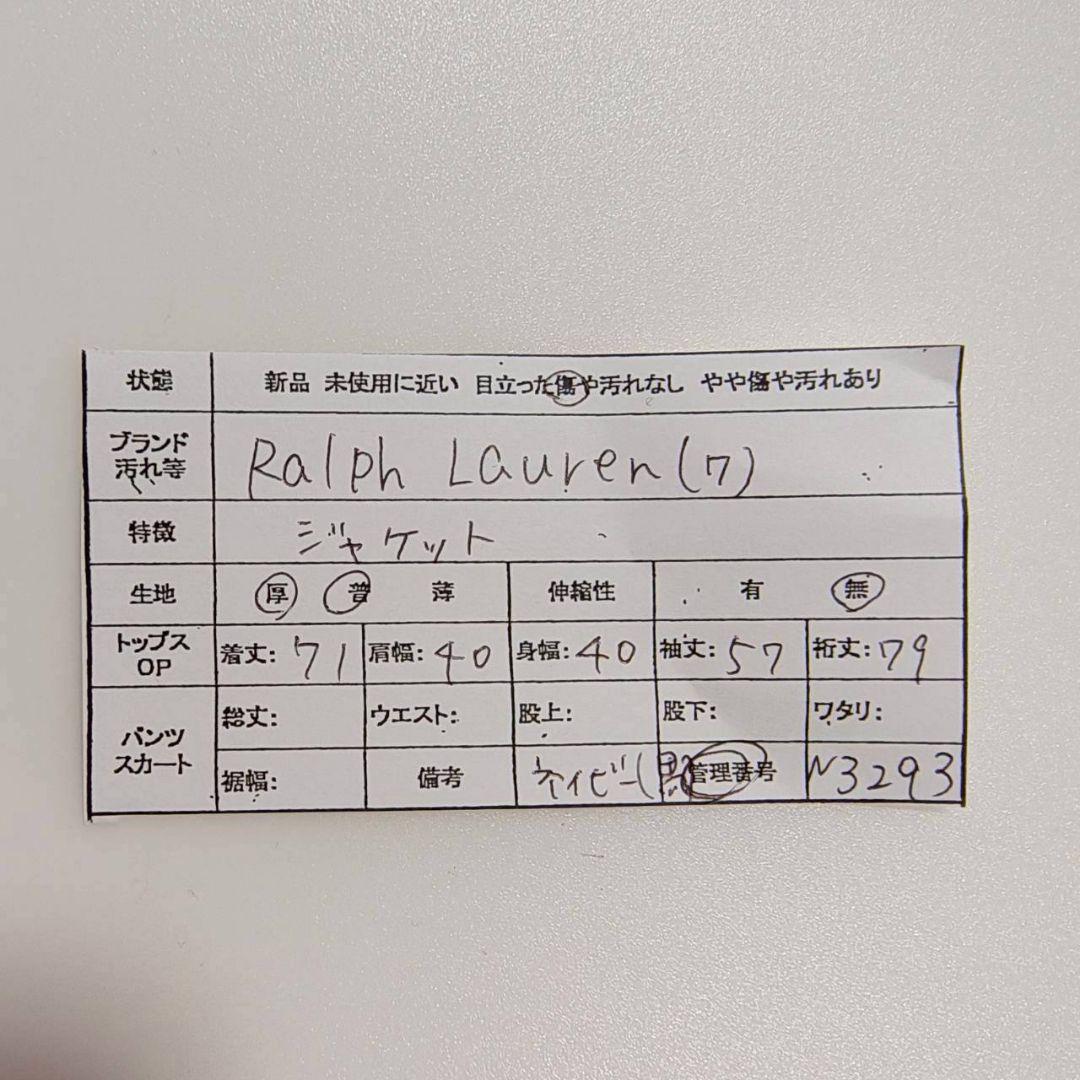 状態 新品 未使用に近い 目立った傷や汚れなし やや傷や汚れあり
ブランド
汚れ等
Ralph Lauren(7)
特徴 ジャケット
生地 厚 普 薄 伸縮性 有 無
トップス
OP
着丈: 71 肩幅: 40 身幅: 40 袖丈: 57 裄丈: 79
パンツ
スカート
総丈: ウエスト: 股上: 股下: ワタリ:
裾幅: 備考 ネイビー(黒 管理番号 N3293